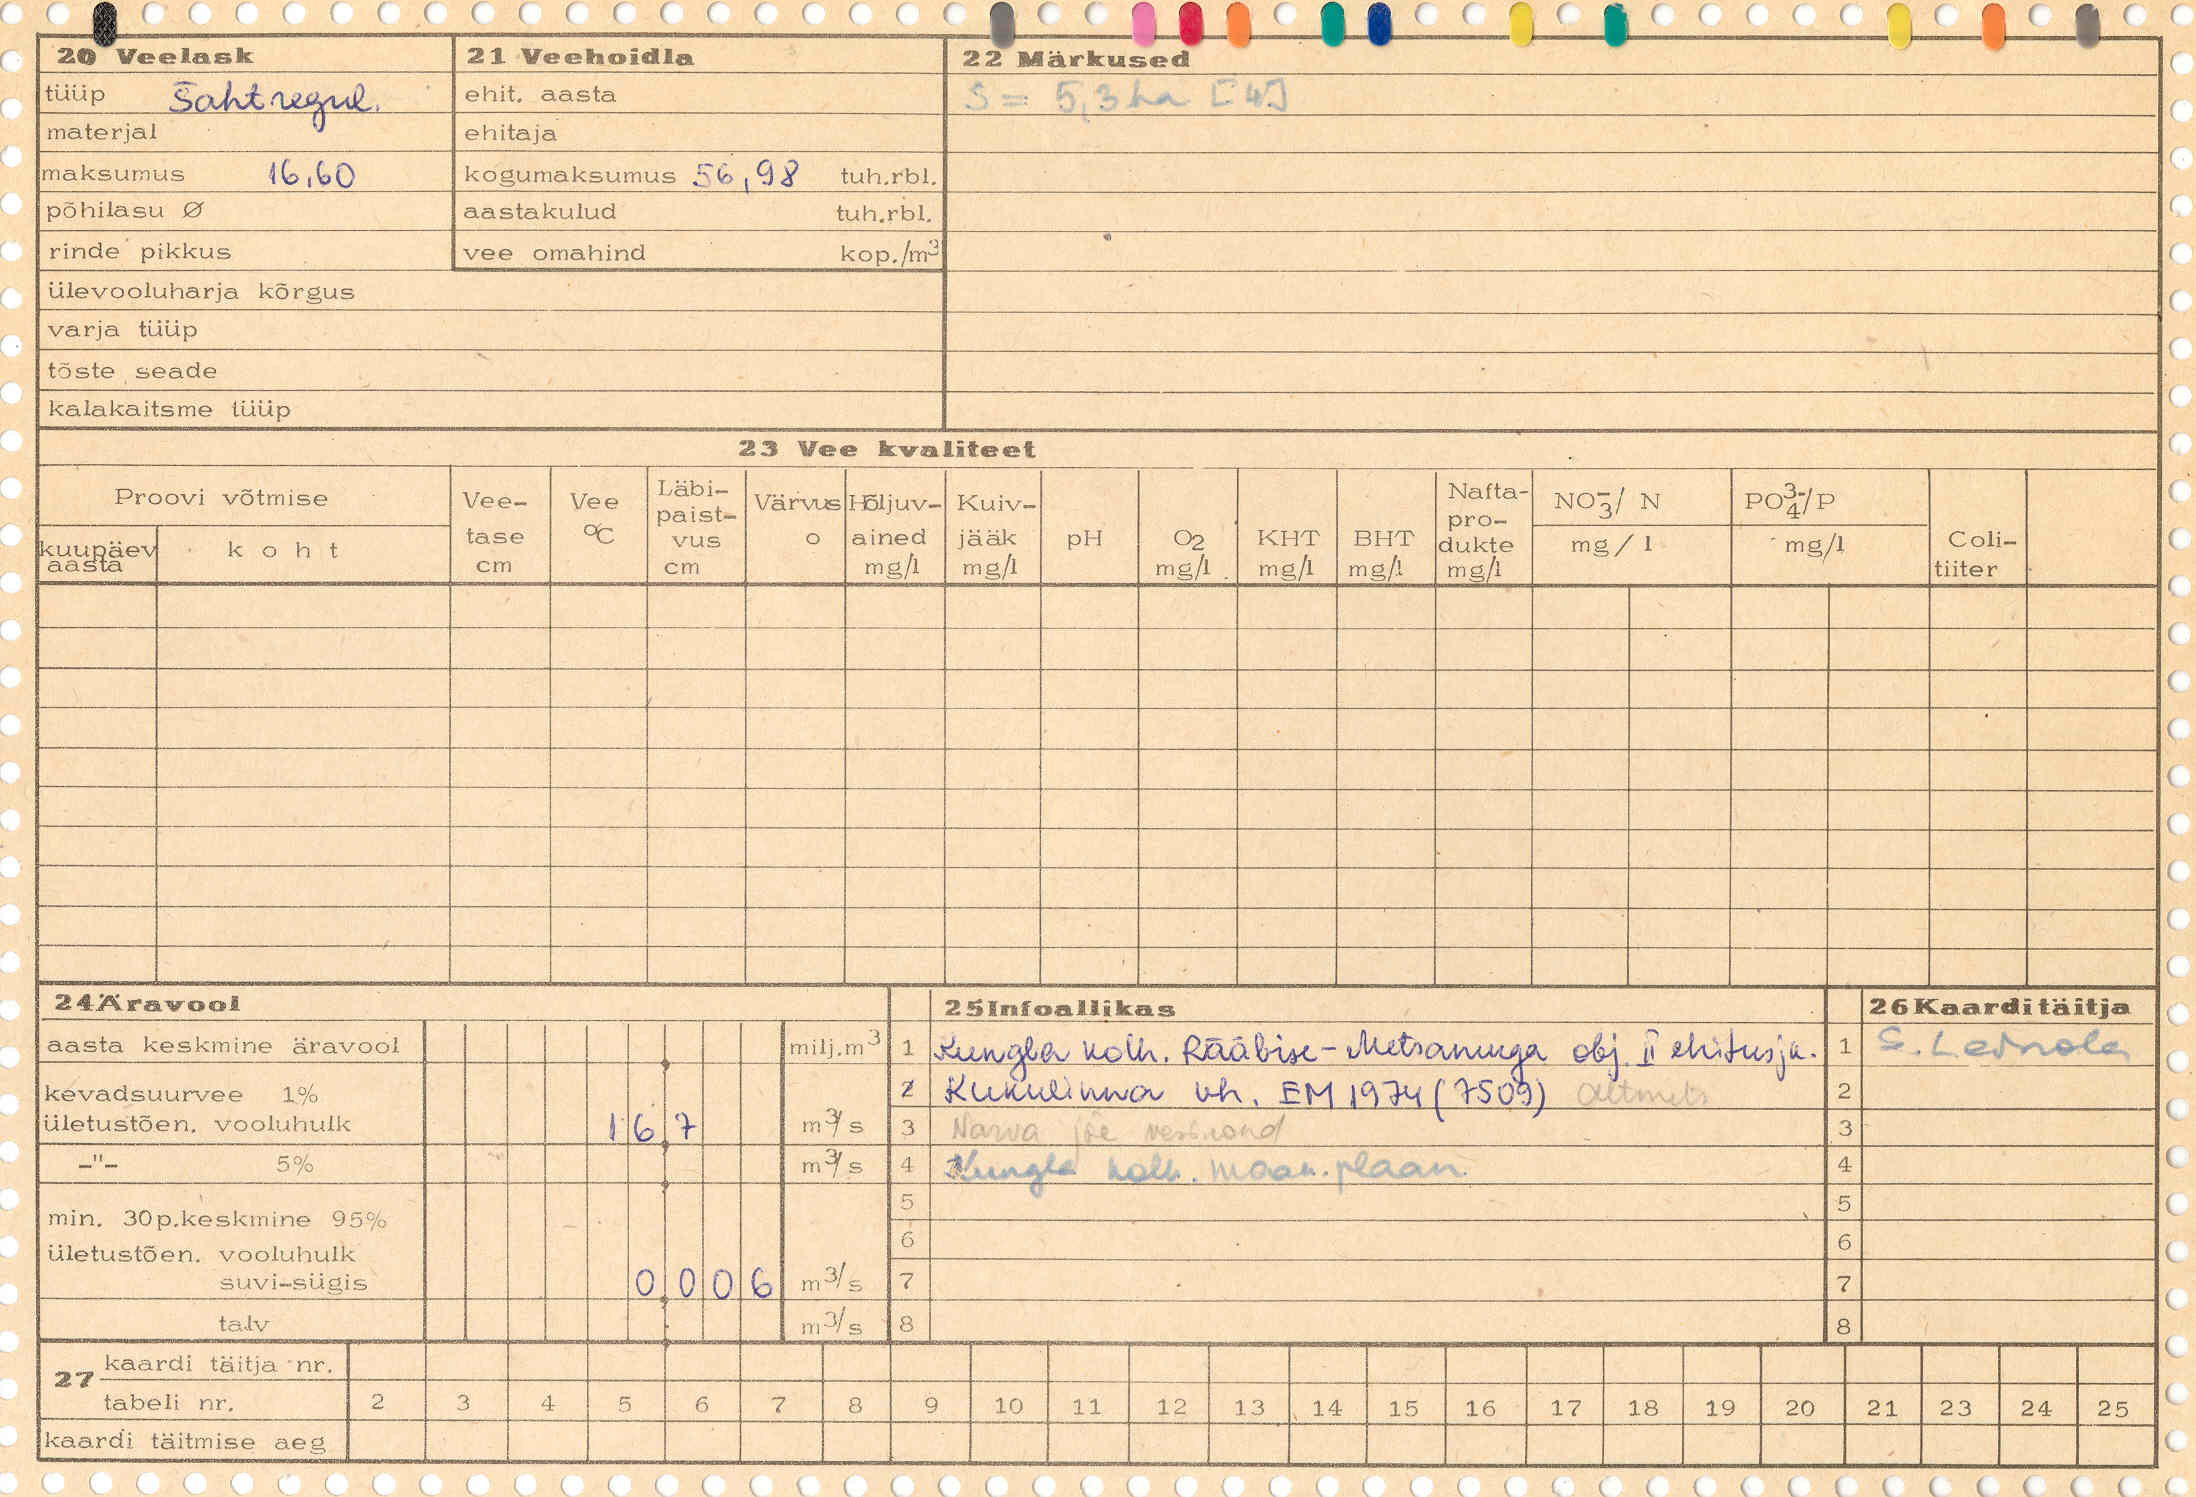 20 Veelask
tüüp Šahtregul.
materjal
maksumus 16,60
põhilasu Ø
rinde pikkus
ülevooluharja kõrgus
varja tüüp
tõste seade
kalakaitsme tüüp
21 Veehoidla
ehit. aasta
ehitaja
kogumaksumus 56,98 tuh.rbl.
aastakulud tuh.rbl.
vee omahind kop./m³
22 Märkused
S = 5,3 ha [4]
23 Vee kvaliteet
Proovi võtmise
kuupäev
aasta
koht
Vee-
tase
cm
Vee
°C
Läbi-
paist-
vus
cm
Värvus
o
Hõljuv-
ained
mg/l
Kuiv-
jääk
mg/l
pH
O2
mg/l
KHT
mg/l
BHT
mg/l
Nafta-
pro-
dukte
mg/l
NO₃⁻/ N
mg/l
PO₄³⁻/P
mg/l
Coli-
tiiter
24 Äravool
aasta keskmine äravool milj.m³
kevadsuurvee 1%
ületustõen. vooluhulk 1 6 7 m³/s
-"- 5% m³/s
min. 30p.keskmine 95%
ületustõen. vooluhulk
suvi-sügis 0 0 0 6 m³/s
talv m³/s
25 Infoallikas
1 Kungla kolh. Rääbise-Metsanuga obj. II ehitusjk.
2 Kukulinna vh. EM 1974 (7509)
3 Narva jõe vesikond
4 Kungla kolh. maak. plaan
5
6
7
8
26 Kaarditäitja
1
2
3
4
5
6
7
8
27 kaardi täitja nr.
tabeli nr. 2 3 4 5 6 7 8 9 10 11 12 13 14 15 16 17 18 19 20 21 23 24 25
kaardi täitmise aeg